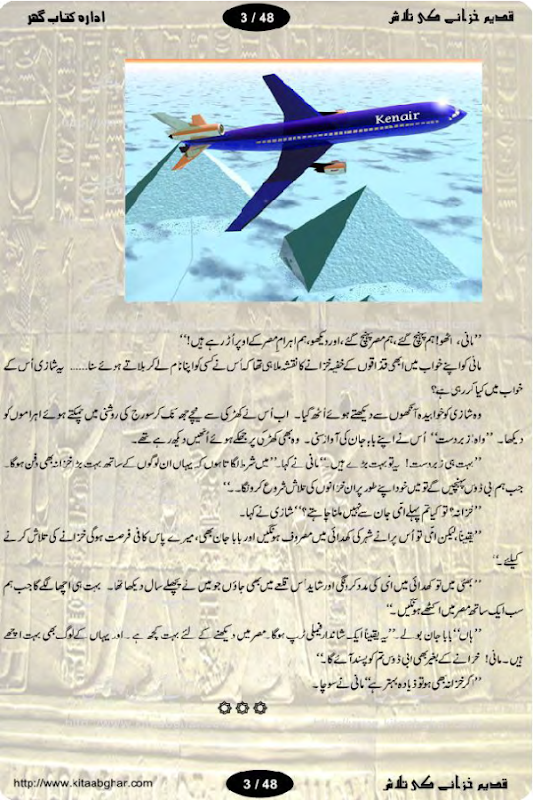 ادارہ کتاب گھر
3 / 48
قدیم خزانے کی تلاش
Kenair
’’مانی، اٹھو! ہم پہنچ گئے، ہم مصر پہنچ گئے، اور دیکھو، ہم اہرامِ مصر کے اوپر اُڑ رہے ہیں!‘‘
مانی کو اپنے خواب میں ابھی قذاقوں کے خفیہ خزانے کا نقشہ ملا ہی تھا کہ اُس نے کسی کو اپنا نام لے کر بلاتے ہوئے سنا...... یہ شازی اُس کے
خواب میں کیا کر رہی ہے؟
وہ شازی کو خوابیدہ آنکھوں سے دیکھتے ہوئے اُٹھ گیا۔ اب اُس نے کھڑکی سے نیچے جھانک کر سورج کی روشنی میں چمکتے ہوئے اہراموں کو
دیکھا۔ ’’واہ زبردست‘‘ اُس نے اپنے بابا جان کی آواز سنی۔ وہ بھی کھڑکی پر جھکے ہوئے اُنھیں دیکھ رہے تھے۔
’’بہت ہی زبردست! یہ تو بہت بڑے ہیں۔‘‘ مانی نے کہا۔ ’’میں شرط لگاتا ہوں کہ یہاں ان لوگوں کے ساتھ بہت بڑا خزانہ بھی دفن ہوگا۔
جب ہم بی ڈوس پہنچیں گے تو میں خود اپنے طور پر ان خزانوں کی تلاش شروع کروں گا۔‘‘
’’خزانہ؟ تو کیا تم پہلے امی جان سے نہیں ملنا چاہتے؟‘‘ شازی نے کہا۔
’’یقیناً، لیکن امی تو اُس پرانے شہر کی کھدائی میں مصروف ہونگیں اور بابا جان بھی، میرے پاس کافی فرصت ہوگی خزانے کی تلاش کرنے
کیلئے۔‘‘
’’بھئی میں تو کھدائی میں امی کی مدد کرونگی اور شاید اس قلعے میں بھی جاؤں جو میں نے پچھلے سال دیکھا تھا۔ بہت ہی اچھا لگے گا جب ہم
سب ایک ساتھ مصر میں اکٹھے ہونگیں۔‘‘
’’ہاں‘‘ بابا جان بولے۔ ’’یہ یقیناً ایک شاندار فیملی ٹرپ ہوگا۔ مصر میں دیکھنے کے لئے بہت کچھ ہے۔ اور یہاں کے لوگ بھی بہت اچھے
ہیں۔ مانی! خزانے کے بغیر بھی ابی ڈوس تم کو پسند آئے گا۔‘‘
’’اگر خزانہ بھی ہو تو زیادہ بہتر ہے‘‘ مانی نے سوچا۔
http://www.kitaabghar.com
3 / 48
قدیم خزانے کی تلاش